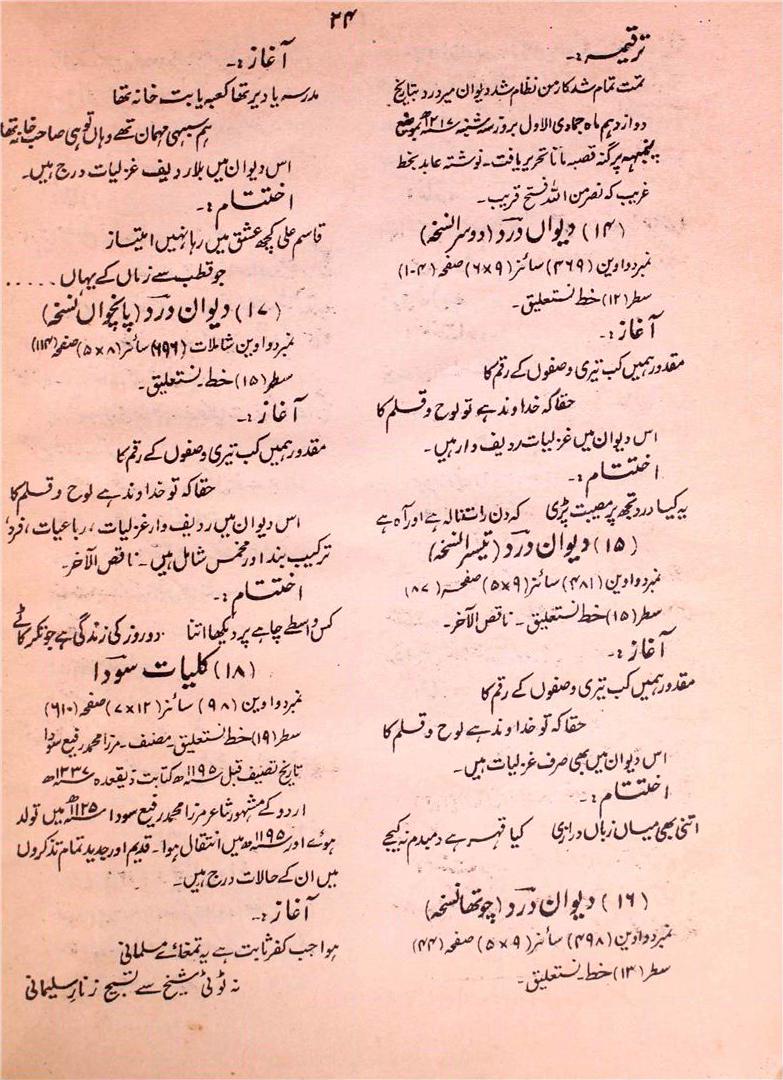 ۲۴
ترقیمہ:۔
تمت تمام شد کار من نظام شد دیوان میر درد بتاریخ
دوازدہم ماہ جمادی الاول بروز سہ شنبہ ۱۲۱۷ھ بموضع
پرگنہ قصبہ تحریر یافت۔ نوشتہ عابد بخط
غریب کہ نصر من اللہ فتح قریب۔
(۱۴) دیوان درد (دوسرا نسخہ)
نمبر دواوین (۴۶۹) سائز (۹×۶) صفحہ (۱۰۴)
سطر (۱۲) خط نستعلیق۔
آغاز:۔
مقدور ہمیں کب تیری وصفوں کے رقم کا
حقا کہ خداوند ہے تو لوح و قلم کا
اس دیوان میں غزلیات ردیف وار ہیں۔
اختتام:۔
یہ کیا درد تجھ پر مصیبت پڑی کہ دن رات نالہ ہے اور آہ ہے
(۱۵) دیوان درد (تیسرا نسخہ)
نمبر دواوین (۴۸۱) سائز (۹×۵) صفحہ (۸۷)
سطر (۱۵) خط نستعلیق۔ ناقص الآخر۔
آغاز:۔
مقدور ہمیں کب تیری وصفوں کے رقم کا
حقا کہ تو خداوند ہے لوح و قلم کا
اس دیوان میں بھی صرف غزلیات ہیں۔
اختتام:۔
اتنی بھی میاں زباں درازی کیا قہر ہے دمبدم نہ کیجے
(۱۶) دیوان درد (چوتھا نسخہ)
نمبر دواوین (۴۹۸) سائز (۹×۵) صفحہ (۴۴)
سطر (۱۳) خط نستعلیق۔
آغاز:۔
مدرسہ یا دیر تھا کعبہ یا بت خانہ تھا
ہم سبھی مہمان تھے وہاں تو ہی صاحب خانہ تھا
اس دیوان میں بلا ردیف غزلیات درج ہیں۔
اختتام:۔
قاسم علی کچھ عشق میں رہا نہیں امتیاز
جو قطب سے زماں کے یہاں .....
(۱۷) دیوان درد (پانچواں نسخہ)
نمبر دواوین شاملات (۶۹۶) سائز (۸×۵) صفحہ (۱۱۴)
سطر (۱۵) خط نستعلیق۔
آغاز:۔
مقدور ہمیں کب تیری وصفوں کے رقم کا
حقا کہ تو خداوند ہے لوح و قلم کا
اس دیوان میں ردیف وار غزلیات، رباعیات، فرد،
ترکیب بند اور مخمس شامل ہیں۔ ناقص الآخر۔
اختتام:۔
کس واسطے چاہے پر دیکھا اتنا دو روز کی زندگی ہے جو نکر کاٹے
(۱۸) کلیات سودا
نمبر دواوین (۹۸) سائز (۱۲×۷) صفحہ (۶۱۰)
سطر (۱۹) خط نستعلیق۔ مصنف۔ مرزا محمد رفیع سودا
تاریخ تصنیف قبل ۱۱۹۵ھ کتابت ذیقعدہ ۱۲۳۷ھ
اردو کے مشہور شاعر مرزا محمد رفیع سودا ۱۱۲۵ھ میں تولد
ہوئے اور ۱۱۹۵ھ میں انتقال ہوا۔ قدیم اور جدید تمام تذکروں
میں ان کے حالات درج ہیں۔
آغاز:۔
ہوا جب کفر ثابت ہے یہ تمغائے مسلمانی
نہ ٹوٹی شیخ سے تسبیح زنار سلیمانی